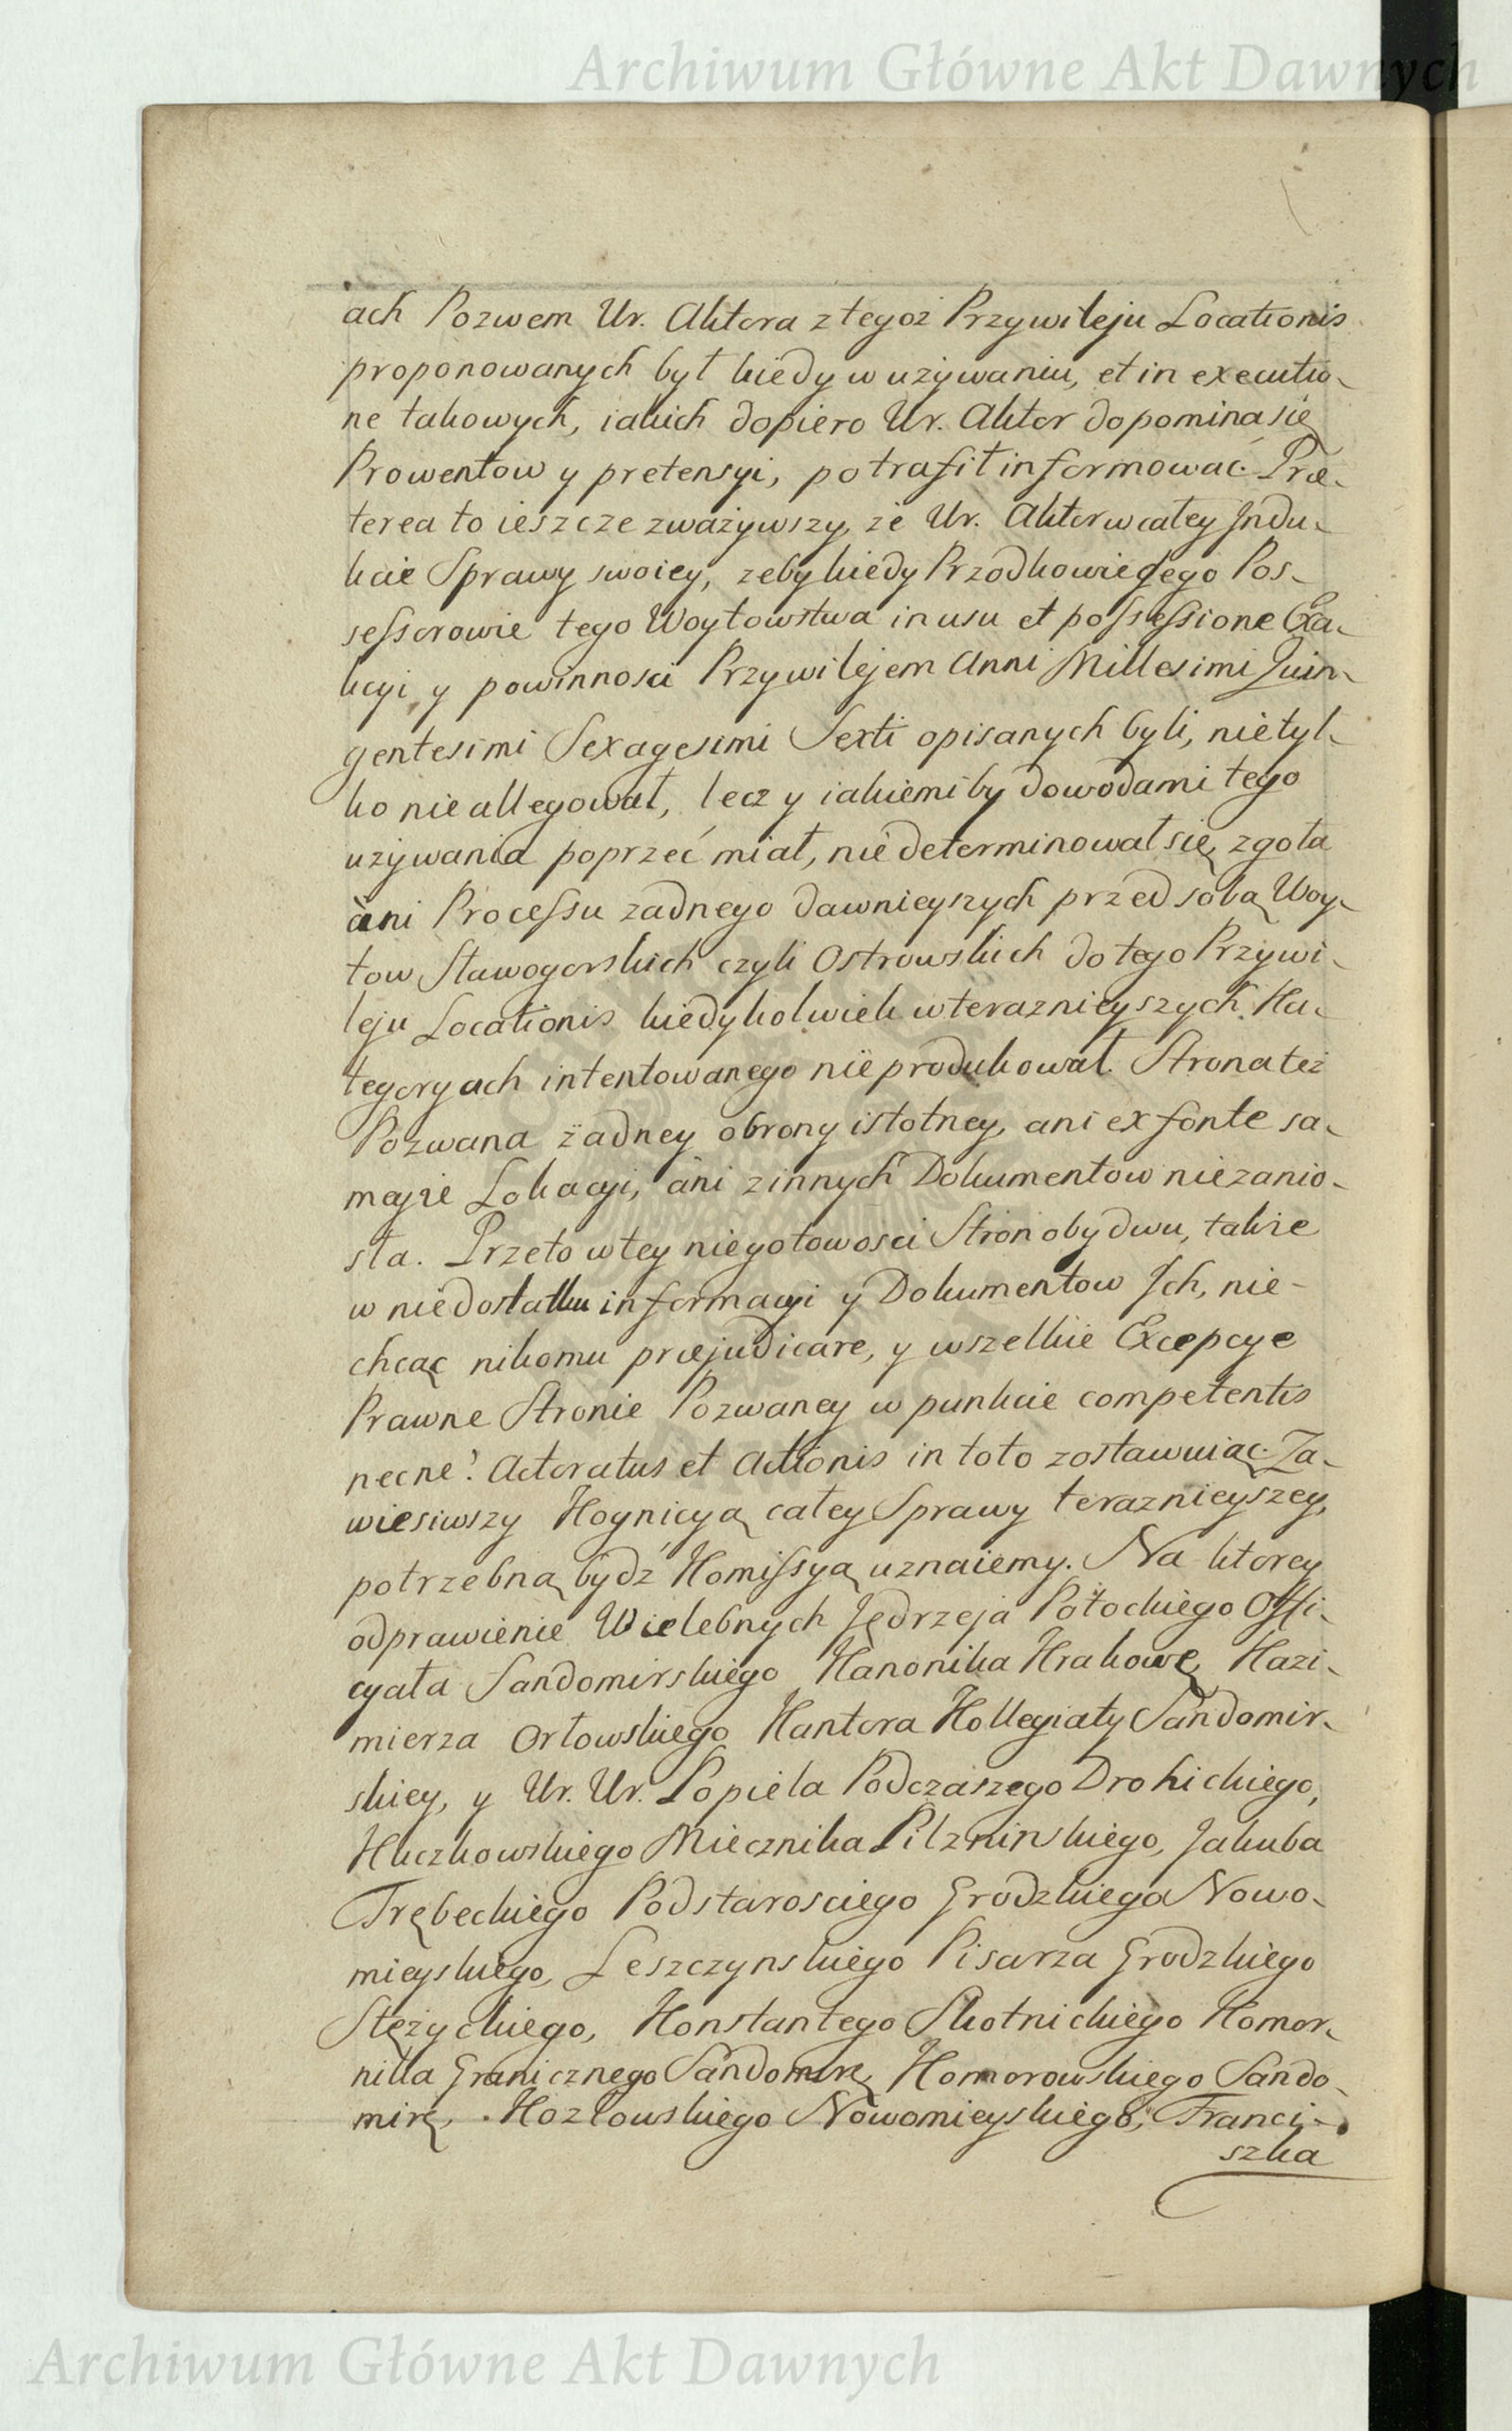 Archiwum Główne Akt Dawnych
ach Pozwem Ur. Aktora z tegoż Przywileju Locationis
proponowanych był kiedy w używaniu, et in executio-
ne takowych, iakich dopiero Ur. Aktor dopomina się
Prowentow y pretensyi, potrafił informować. Præ-
terea to ieszcze zważywszy, że Ur. Aktor w całey Indu-
kcie Sprawy swoiey, żeby kiedy Przodkowie Jego Pos-
sessorowie tego Woytowstwa in usu et possessione Exa-
kcyi y powinnosci Przywilejem Anni Millesimi Quin-
gentesimi Sexagesimi Sexti opisanych byli, nie tyl-
ko nie allegował, lecz y iakiemi by dowodami tego
używania poprzeć miał, nie determinował się, zgoła
ani Processu żadnego dawnieyszych przed sobą Woy-
tow Sławogorskich czyli Ostrowskich do tego Przywi-
leju Locationis kiedykolwiek w teraznieyszych Ka-
tegoryach intentowanego nie produkował. Strona też
Pozwana żadney obrony istotney, ani ex fonte sa-
mejże Lokacyi, ani z innych Dokumentow nie zanio-
sła. Przeto w tey niegotowości Stron obydwu, także
w niedostatku informacyi y Dokumentow Ich, nie-
chcąc nikomu præjudicare, y wszelkie Excepcye
Prawne Stronie Pozwaney w punkcie competentis
necne? Actoratus et Actionis in toto zostawuiąc. Za-
wiesiwszy Kognicyą całey Sprawy teraznieyszey,
potrzebną bydź Komissyą uznaiemy. Na ktorey
odprawienie Wielebnych Jędrzeja Potockiego Offi-
cyała Sandomirskiego Kanonika Krakowę, Kazi-
mierza Orłowskiego Kantora Kollegiaty Sandomir-
skiey, y Ur. Ur. Popiela Podczaszego Drohickiego,
Kluczkowskiego Miecznika Pilznińskiego, Jakuba
Trębeckiego Podstarosciego Grodzkiego Nowo-
mieyskiego, Leszczynskiego Pisarza Grodzkiego
Stężyckiego, Konstantego Skotnickiego Komor-
nika Granicznego Sandomirę, Komorowskiego Sando-
mirę, Kozłowskiego Nowomieyskiego, Franci-
szka
Archiwum Główne Akt Dawnych